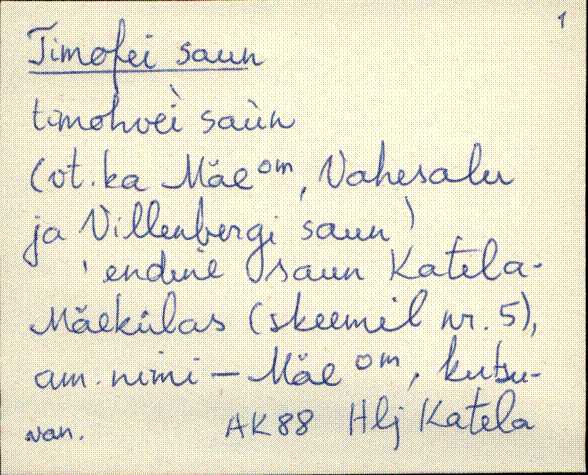 1
Timofei saun
timohvei̇̀ saùn
(vt. ka Mäe om, Vahesalu
ja Villenbergi saun)
endine saun Katela-
Mäekülas (skeemil nr. 5),
am. nimi – Mäe om, kutsu-
van. AK88 Hlj Katela